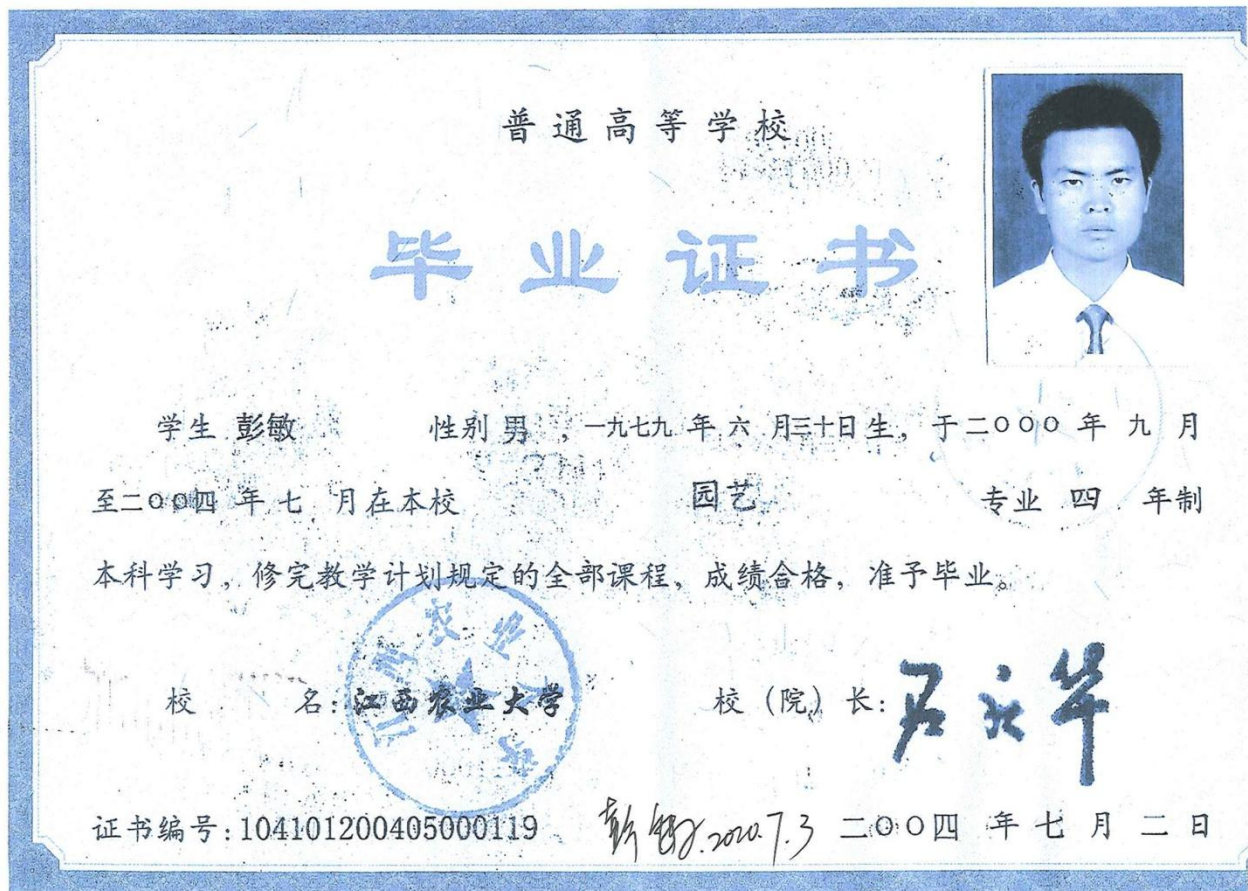 普通高等学校
毕业证书
学生 彭敏 性别 男 ,一九七九 年 六 月三十日生,于二〇〇〇 年 九 月
至二〇〇四 年 七 月在本校 园艺 专业 四 年制
本科学习,修完教学计划规定的全部课程,成绩合格,准予毕业。
校 名:江西农业大学 校(院)长:
证书编号:104101200405000119 彭敏.2020.7.3 二〇〇四 年 七 月 二 日